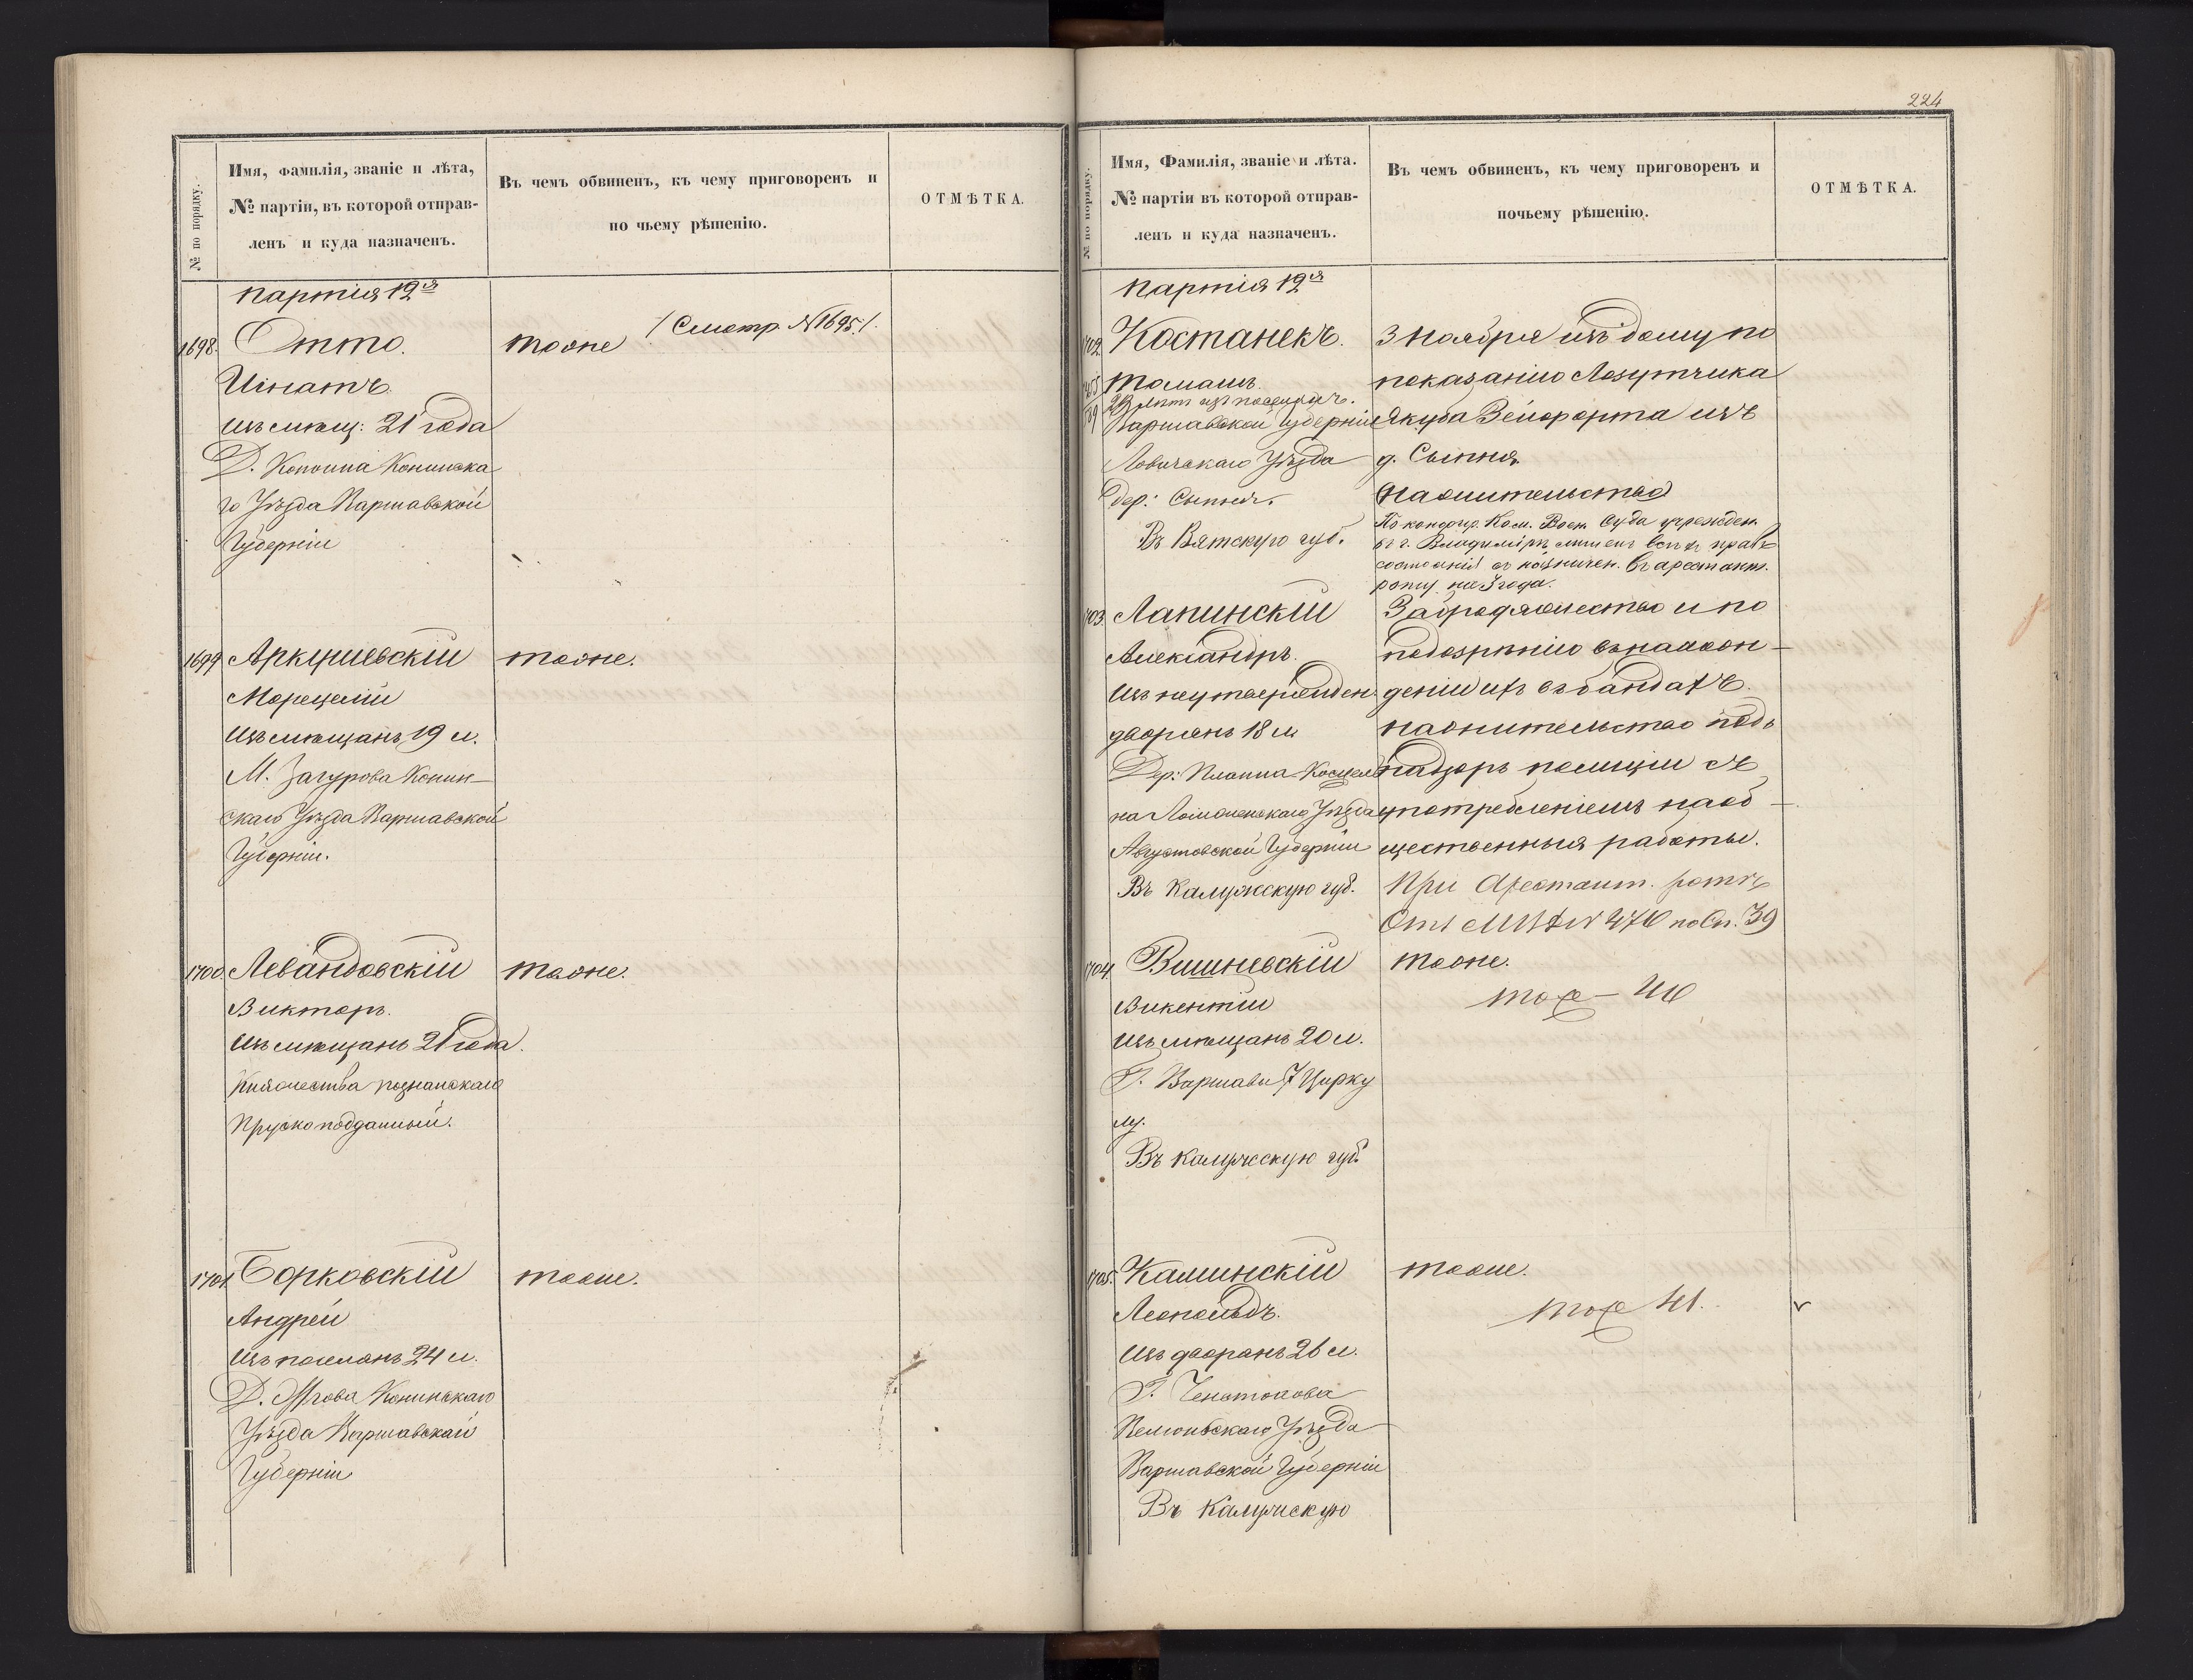 224
№ по порядку.
Имя, фамилія, званіе и лѣта,
№ партіи, въ которой отправ-
ленъ и куда назначенъ.
Въ чемъ обвиненъ, къ чему приговоренъ и
по чьему рѣшенію.
ОТМѢТКА.
партія 12я
1698. Отто.
тоже /Смотр. №1695./.
Игнатъ
изъ мѣщ: 21 года
Д. Конинска
го Уѣзда Варшавской
Губерніи
1699 Аркушевскій
тоже.
Марцелій
изъ мѣщанъ 19 л.
М. Загурова Конин-
скаго Уѣзда Варшавской
Губерніи.
1700. Левандовскій
тоже.
Викторъ.
изъ мѣщанъ 21 года.
Княжества познанскаго
Прускоподданный.
1701. Борковскій
тоже.
Андрей
изъ поселянъ 24 л.
Д. Конинскаго
Уѣзда Варшавской
Губерніи
№ по порядку.
Имя, Фамилія, званіе и лѣта.
№ партіи въ которой отправ-
ленъ и куда назначенъ.
Въ чемъ обвиненъ, къ чему приговоренъ и
почьему рѣшенію.
ОТМѢТКА.
партія 12я
1702 Костанекъ.
Томашъ.
23 лѣтъ изъ поселянъ.
Варшавской Губерніи
Ловичскаго Уѣзда
Дер: Сыпня.
Въ Вятскую губ.
3 ноября изъ дому по
показанію Лазутчика
Якуба Зейферта изъ
д. Сыпня
Нажительство
По конфир. Ком. Воен. Суда учрежден.
въ г. Владимірѣ лишенъ всѣхъ правъ
состоянія съ назначен. въ арестант.
роту на 3 года.
1703. Лапинскій
Александръ.
Изъ неутвержден.
дворянъ 18 л
на Ломженскаго Уѣзда
Августовской Губерніи
Въ Калужскую губ.
За бродяжество и по
подозрѣнію въ нахож-
деніи ихъ въ бандахъ.
нажительство подъ
надзоръ полиціи съ
употребленіемъ на об-
щественныя работы.
При Арестант. ротѣ
по Сп. 39
1704. Вишневскій
тоже.
Викентій
тоже - 40
изъ мѣщанъ 20 л.
Г. Варшавы 7 Цирку
лу.
Въ Калужскую губ.
1705. Каминскій
тоже.
Леопольдъ.
тоже 41.
изъ дворянъ 26 л.
Г. Ченстохова
Велюньскаго Уѣзда
Варшавской Губерніи
Въ Калужскую